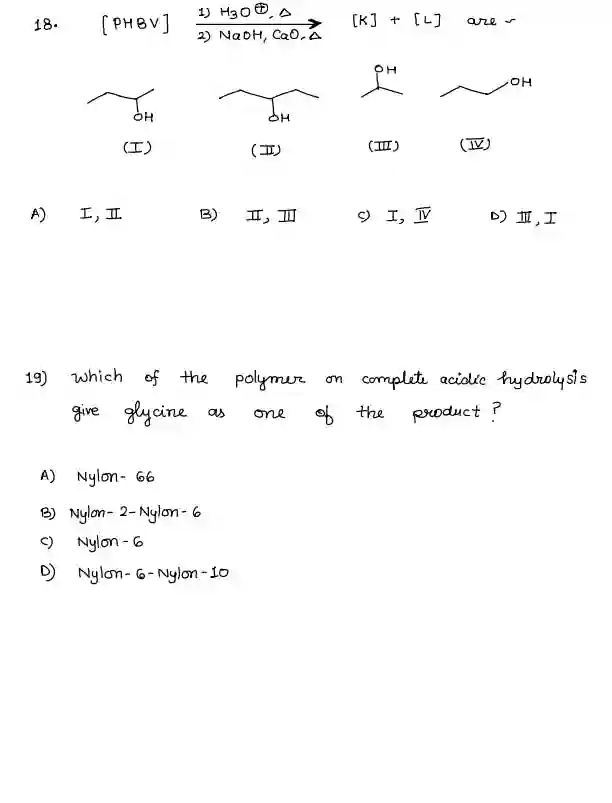 18. [PHBV] 1) H3O⊕, Δ [K] + [L] are ~
2) NaOH, CaO, Δ
OH
OH
OH OH
(I) (II) (III) (IV)
A) I, II B) II, III C) I, IV D) III, I
19) Which of the polymer on complete acidic hydrolysis
give glycine as one of the product?
A) Nylon- 66
B) Nylon- 2- Nylon- 6
C) Nylon - 6
D) Nylon- 6- Nylon-10